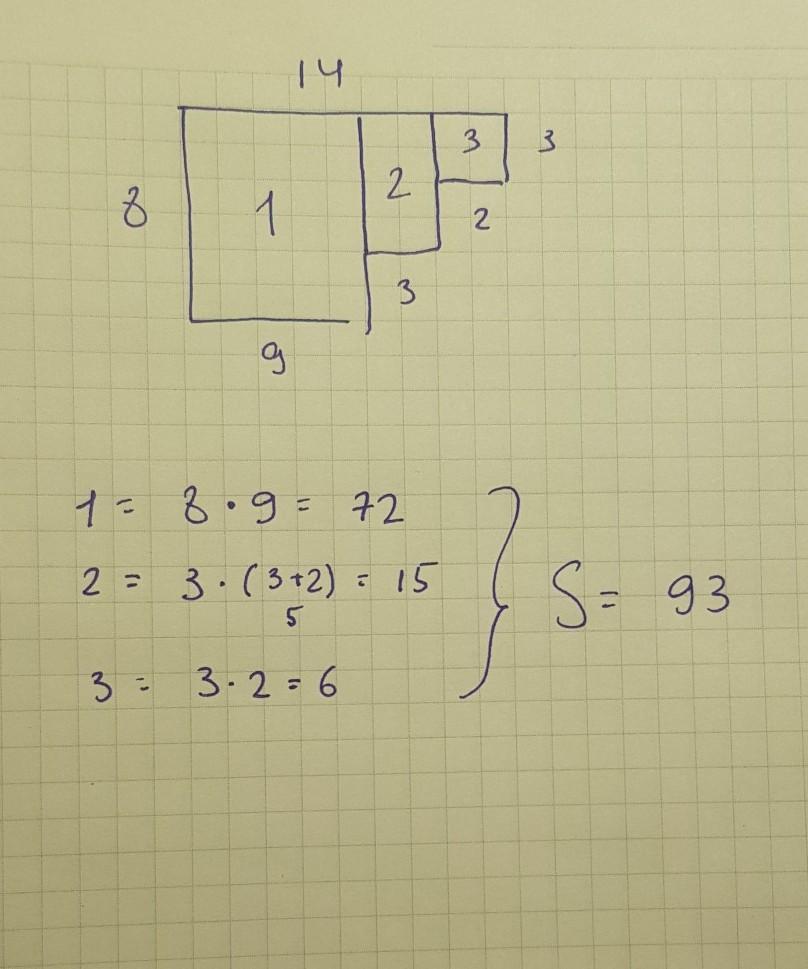 14
3 3
2
8 1
2
3
9
1 = 8 · 9 = 72
2 = 3 · (3+2) = 15
5
S = 93
3 = 3 · 2 = 6